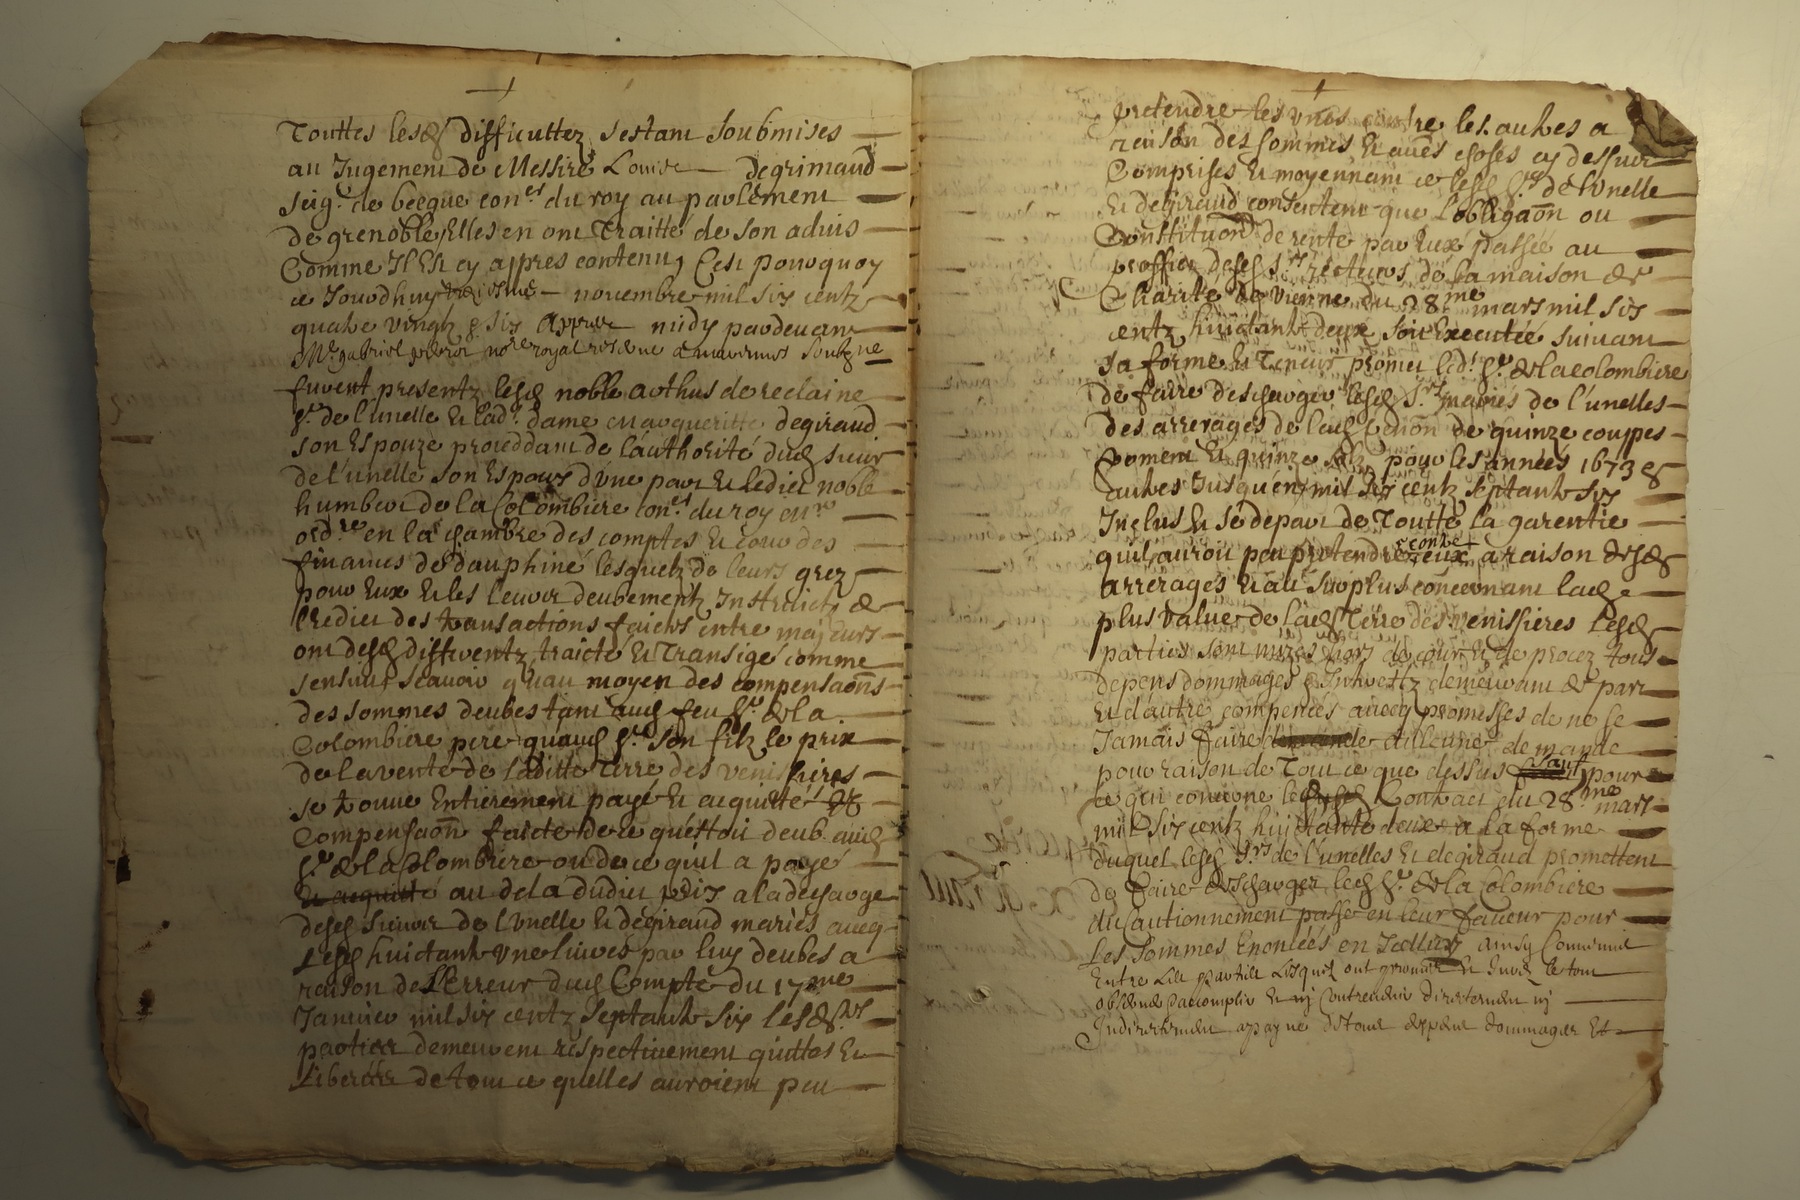 Touttes lesd difficuttez sestant soubmises
au Jugement de Messire Louise degrimaud
seigr de becque coner du roy au parlement
de grenoble, Elles en ont Traitté de son aduis
Comme Il Est cy appres contenu, Cest pourquoy
ce Jourdhuy novembre mil six centz
quatre vingtz & six appres midy pardevant
Me gabriel nore royal soubzne
furent presentz lesd noble arthus de reclaine
sr de l'unelle et lad dame margueritte degiraud
son Espouze proceddant de l'authorité dud sieur
de l'unelle son Espoux d'vne part et ledict noble
humbert de la Colombiere coner du roy
ordre en la chambre des comptes et cour des
finances de dauphiné lesquelz de leurs grez
pour Eux et les leurs deubement Instruictz de
l'Edict des transactions faictes entre majeurs
ont desd differentz traicté et Transigé comme
sensuit scauoir qu'au moyen des compensaōns
des sommes deubes tant aud feu sr de la
Colombiere pere qu'aud sr son filz le prix
de la vente de laditte Terre des venissieres
se trouue Entierement payé et acquitté
Compensaōn faicte de ce questoit deub aud
sr de la Colombiere ou de ce quil a payé
et acquitté au dela dudict prix a la descharge
desd sieurs de l'vnelle et degiraud mariés aueq
Lesd huictante vne liures par luy deubes a
raison de l'Erreur dud Compte du 17me
Januier mil six centz septante six lesd
parties demeurent respectiuement quittes et
Liberées de tout ce quelles auroient peu
pretendre les vnes contre les autres a
raison des sommes et aues choses cy dessus
Comprises et moyennant ce lesd srs de lvnelle
et degiraud consentent que L'obligaōn ou
Constituōn de rente par Eux passée au
proffict desd srs recteurs de la maison de
Charité de vienne du 28me mars mil six
centz huictante deux soit Executée suiuant
sa forme et Teneur promet led sr de la colombiere
de faire descharger lesd srs mariés de l'unelles
des arrerages de lad de quinze couppes
froment et quinze pour les années 1673 &
autres Jusqu'en mil six centz septante six
Inclus et se depart de Toutte la garentie
quil auroit peu pretendre contre eux a raison desd
arrerages et au surplus concernant lad
plus value de lad Terre des venissieres lesd
parties sont mizes hors de cour et de procez tous
depens dommages & Intherestz demeurant de part
et d'autre compencés auecq promesses de ne se
Jamais faire aulcune demande
pour raison de Tout ce que dessus sauf pour
ce qui concerne led Contract du 28me mars
mil six centz huictante deux a la forme
duquel lesd srs de l'unelles et degiraud promettent
de faire descharger led sr de la Colombiere
du cautionnement passé en leur faueur pour
Les sommes Enoncées en Icelluy ainsy Conuenu
Entre lesd parties Lesquelz ont promis et Juré le tout
obseruer accomplir et ny Contreuenir directement ny
Indirectement a payne de tous despens dommages Et